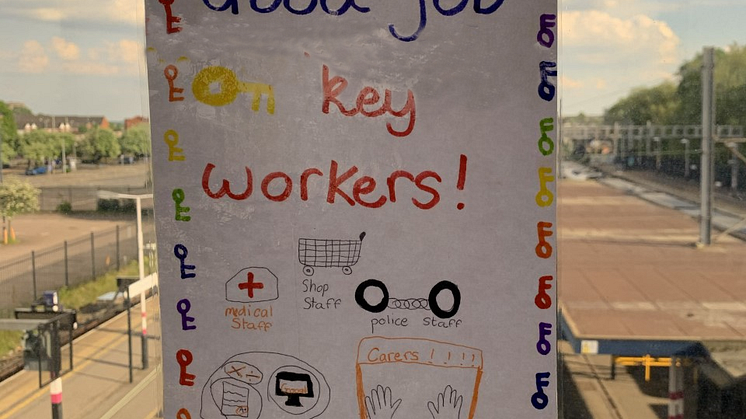 Good job
key
workers!
Shop
Staff
medical
Staff
police staff
Carers!!!!